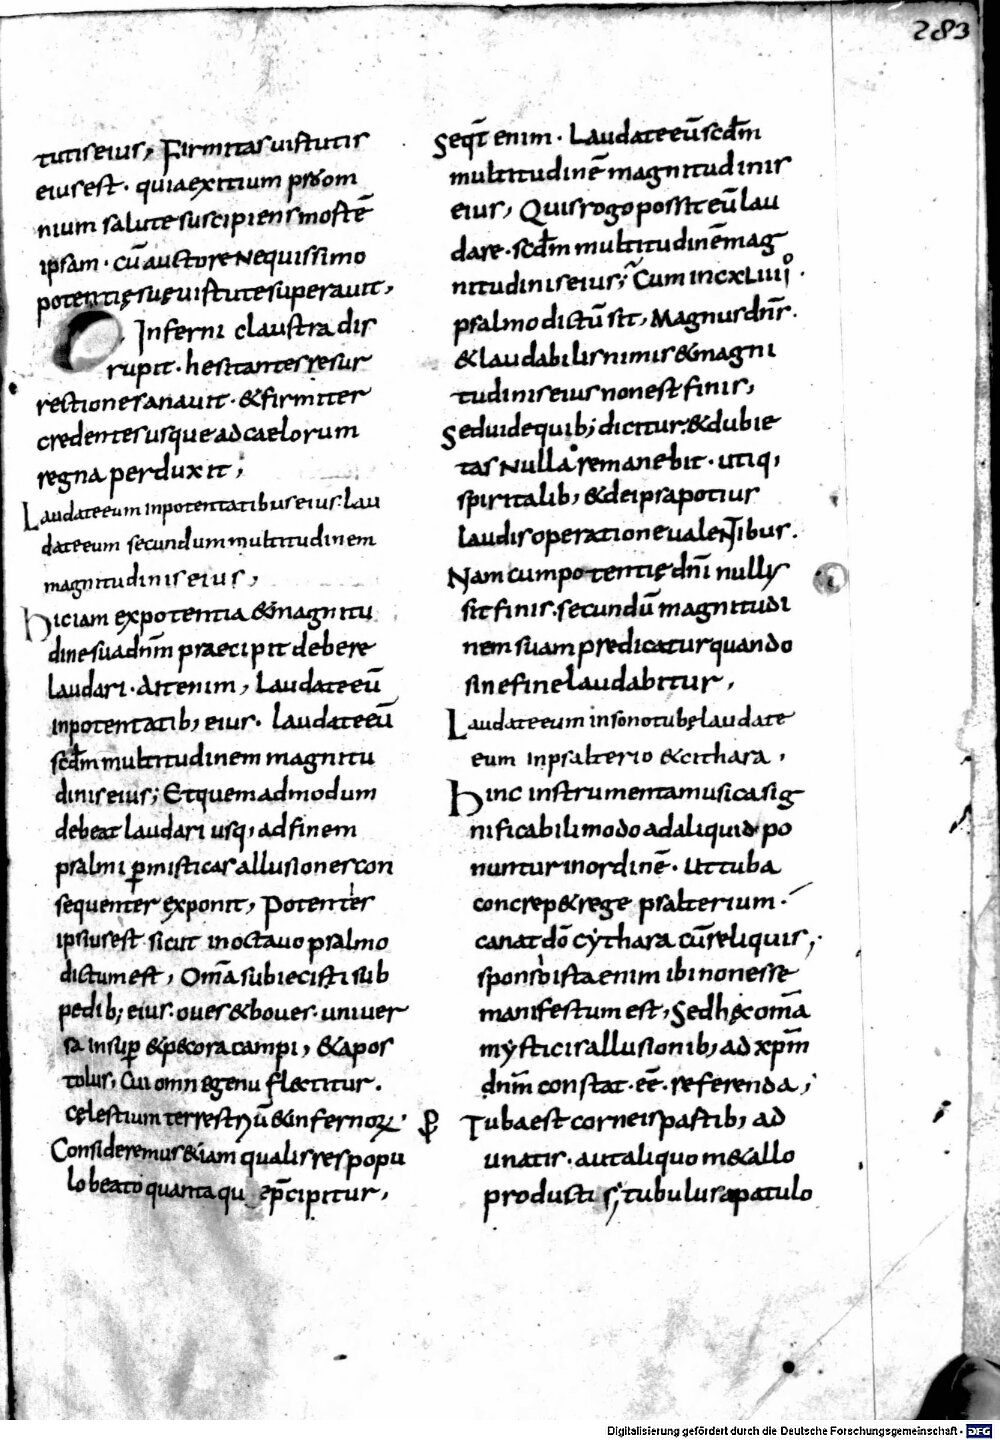 283
tutis eius, Firmitas uirtutis
eius est · quia exitium pro om
nium salute suscipiens mortē
ipsam · cū auctore nequissimo
potentię suę uirtute superauit,
Inferni claustra dis
rupit · hesitantes resur
rectione sanauit · & firmiter
credentes usque ad caelorum
regna perduxit ;
Laudate eum in potentatibus eius · lau
date eum secundum multitudinem
magnitudinis eius ,
Hic iam ex potentia & magnitu
dine sua dn̄m praecipit debere
laudari · Ait enim , Laudate eū
in potentatib; eius · laudate eū
scd̄m multitudinem magnitu
dinis eius ; Et quemadmodum
debeat laudari usq; ad finem
psalmi p̱ misticas allusiones con
sequenter exponit , Potenter
ipsius est sicut in octauo psalmo
dictum est , Om̄a subiecisti sub
pedib; eius · oues & boues · uniuer
sa insup̱ & pecora campi , & apos
tolus , Cui omne genu flectitur ·
cęlestium terrestriū & infernoꝝ ·
Consideremus & iam qualis res popu
lo beato quanta qu epcipitur ,
Seqt̄ enim · Laudate eū scd̄m
multitudinē magnitudinis
eius , Quis rogo possit eū lau
dare · scd̄m multitudinē mag
nitudinis eius ; Cum in cxLiiii°
psalmo dictū sit , Magnus dn̄s ·
& laudabilis nimis & magni
tudinis eius non est finis ,
Sed uide quib; dicitur · & dubie
tas nulla remanebit · utiq;
spiritalib; & de ipsa potius
laudis operatione ualentibus ·
Nam cum potentię dn̄i nullus
sit finis · secundū magnitudi
nem suam predicatur quando
sine fine laudabitur ,
Laudate eum in sono tubę laudate
eum in psalterio & cithara ,
Hinc instrumenta musica sig
nificabili modo ad aliquid po
nuntur in ordinē · Ut tuba
concrep& rege psalterium ·
canat dō cythara cū reliquis ,
sponso ista enim ibi non esse
manifestum est , Sed hęc om̄a
mysticis allusionib; ad xp̄m
dn̄m constat · eē · referenda ,
Tuba est corneis partib; ad
unatis · aut aliquo m&allo
productis ; tubulus a patulo
Digitalisierung gefördert durch die Deutsche Forschungsgemeinschaft - DFG